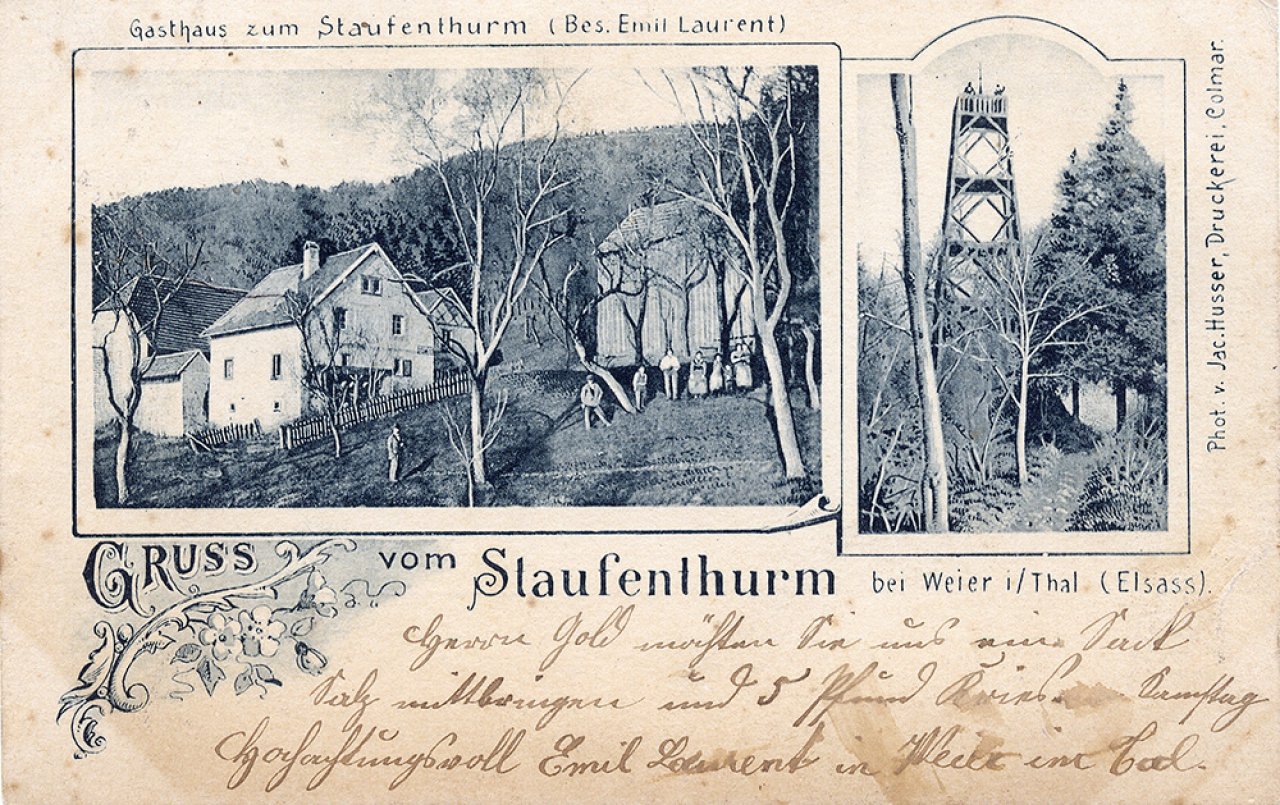 Gasthaus zum Staufenthurm (Bes. Emil Laurent)
Phot. v. Jac. Husser, Druckerei, Colmar.
GRUSS vom Staufenthurm bei Weier i/Thal (Elsass).
Herrn Gold möchten Sie uns ein Sack
Salz mittbringen und 5 Pfund Samstag
Hochachtungsvoll Emil Laurent in Weier im Tal.